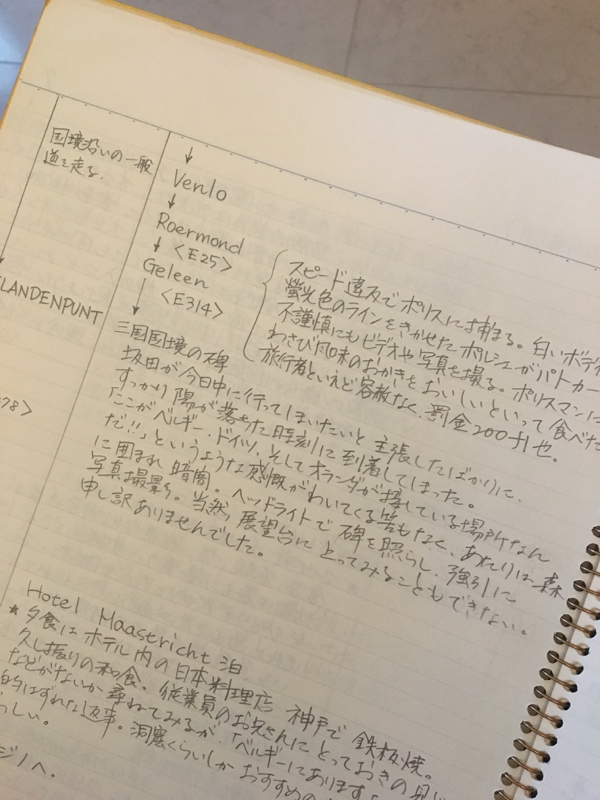 国境沿いの一般
道を走る.
↓
Venlo
↓
Roermond
↓ <E25>
Geleen
↓ <E314>
LANDENPUNT
78>
スピード違反でポリスに捕まる。白いボディ
螢光色のラインをきかせたポルシェがパトカー
不謹慎にもビデオや写真を撮る。ポリスマンに
わさび風味のおかきをおいしいといって食べた
旅行者といえど容赦なく、罰金200チル也。
三国国境の碑
坂田が今日中に行ってしまいたいと主張したばかりに、
すっかり陽が落ちた時刻に到着してしまった。
「ここがベルギー・ドイツ、そしてオランダが接している場所なん
だ!!」というような感慨がわいてくる筈もなく、あたりは森
に囲まれ暗闇。ヘッドライトで碑を照らし、強引に
写真撮影。当然、展望台にとってみることもできない。
申し訳ありませんでした。
Hotel Maastricht 泊
★夕食はホテル内の日本料理店 神戸で鉄板焼。
久し振りの和食。従業員のお兄さんにとっておきの見
などがないか尋ねてみるが、「ベルギーにあります
的はずれな返事。洞窟くらいしかおすすめの
らしい。
ジノへ.